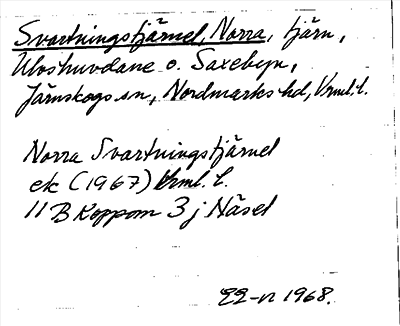 Svartningstjärnel, Norra, tjärn,
Uloshuvdane o. Saxebyn,
Järnskogs sn, Nordmarks hd, Vrml. l.
Norra Svartningstjärnel
ek (1967) Vrml. l.
11 B Koppom 3 j Näset
EE-n 1968.